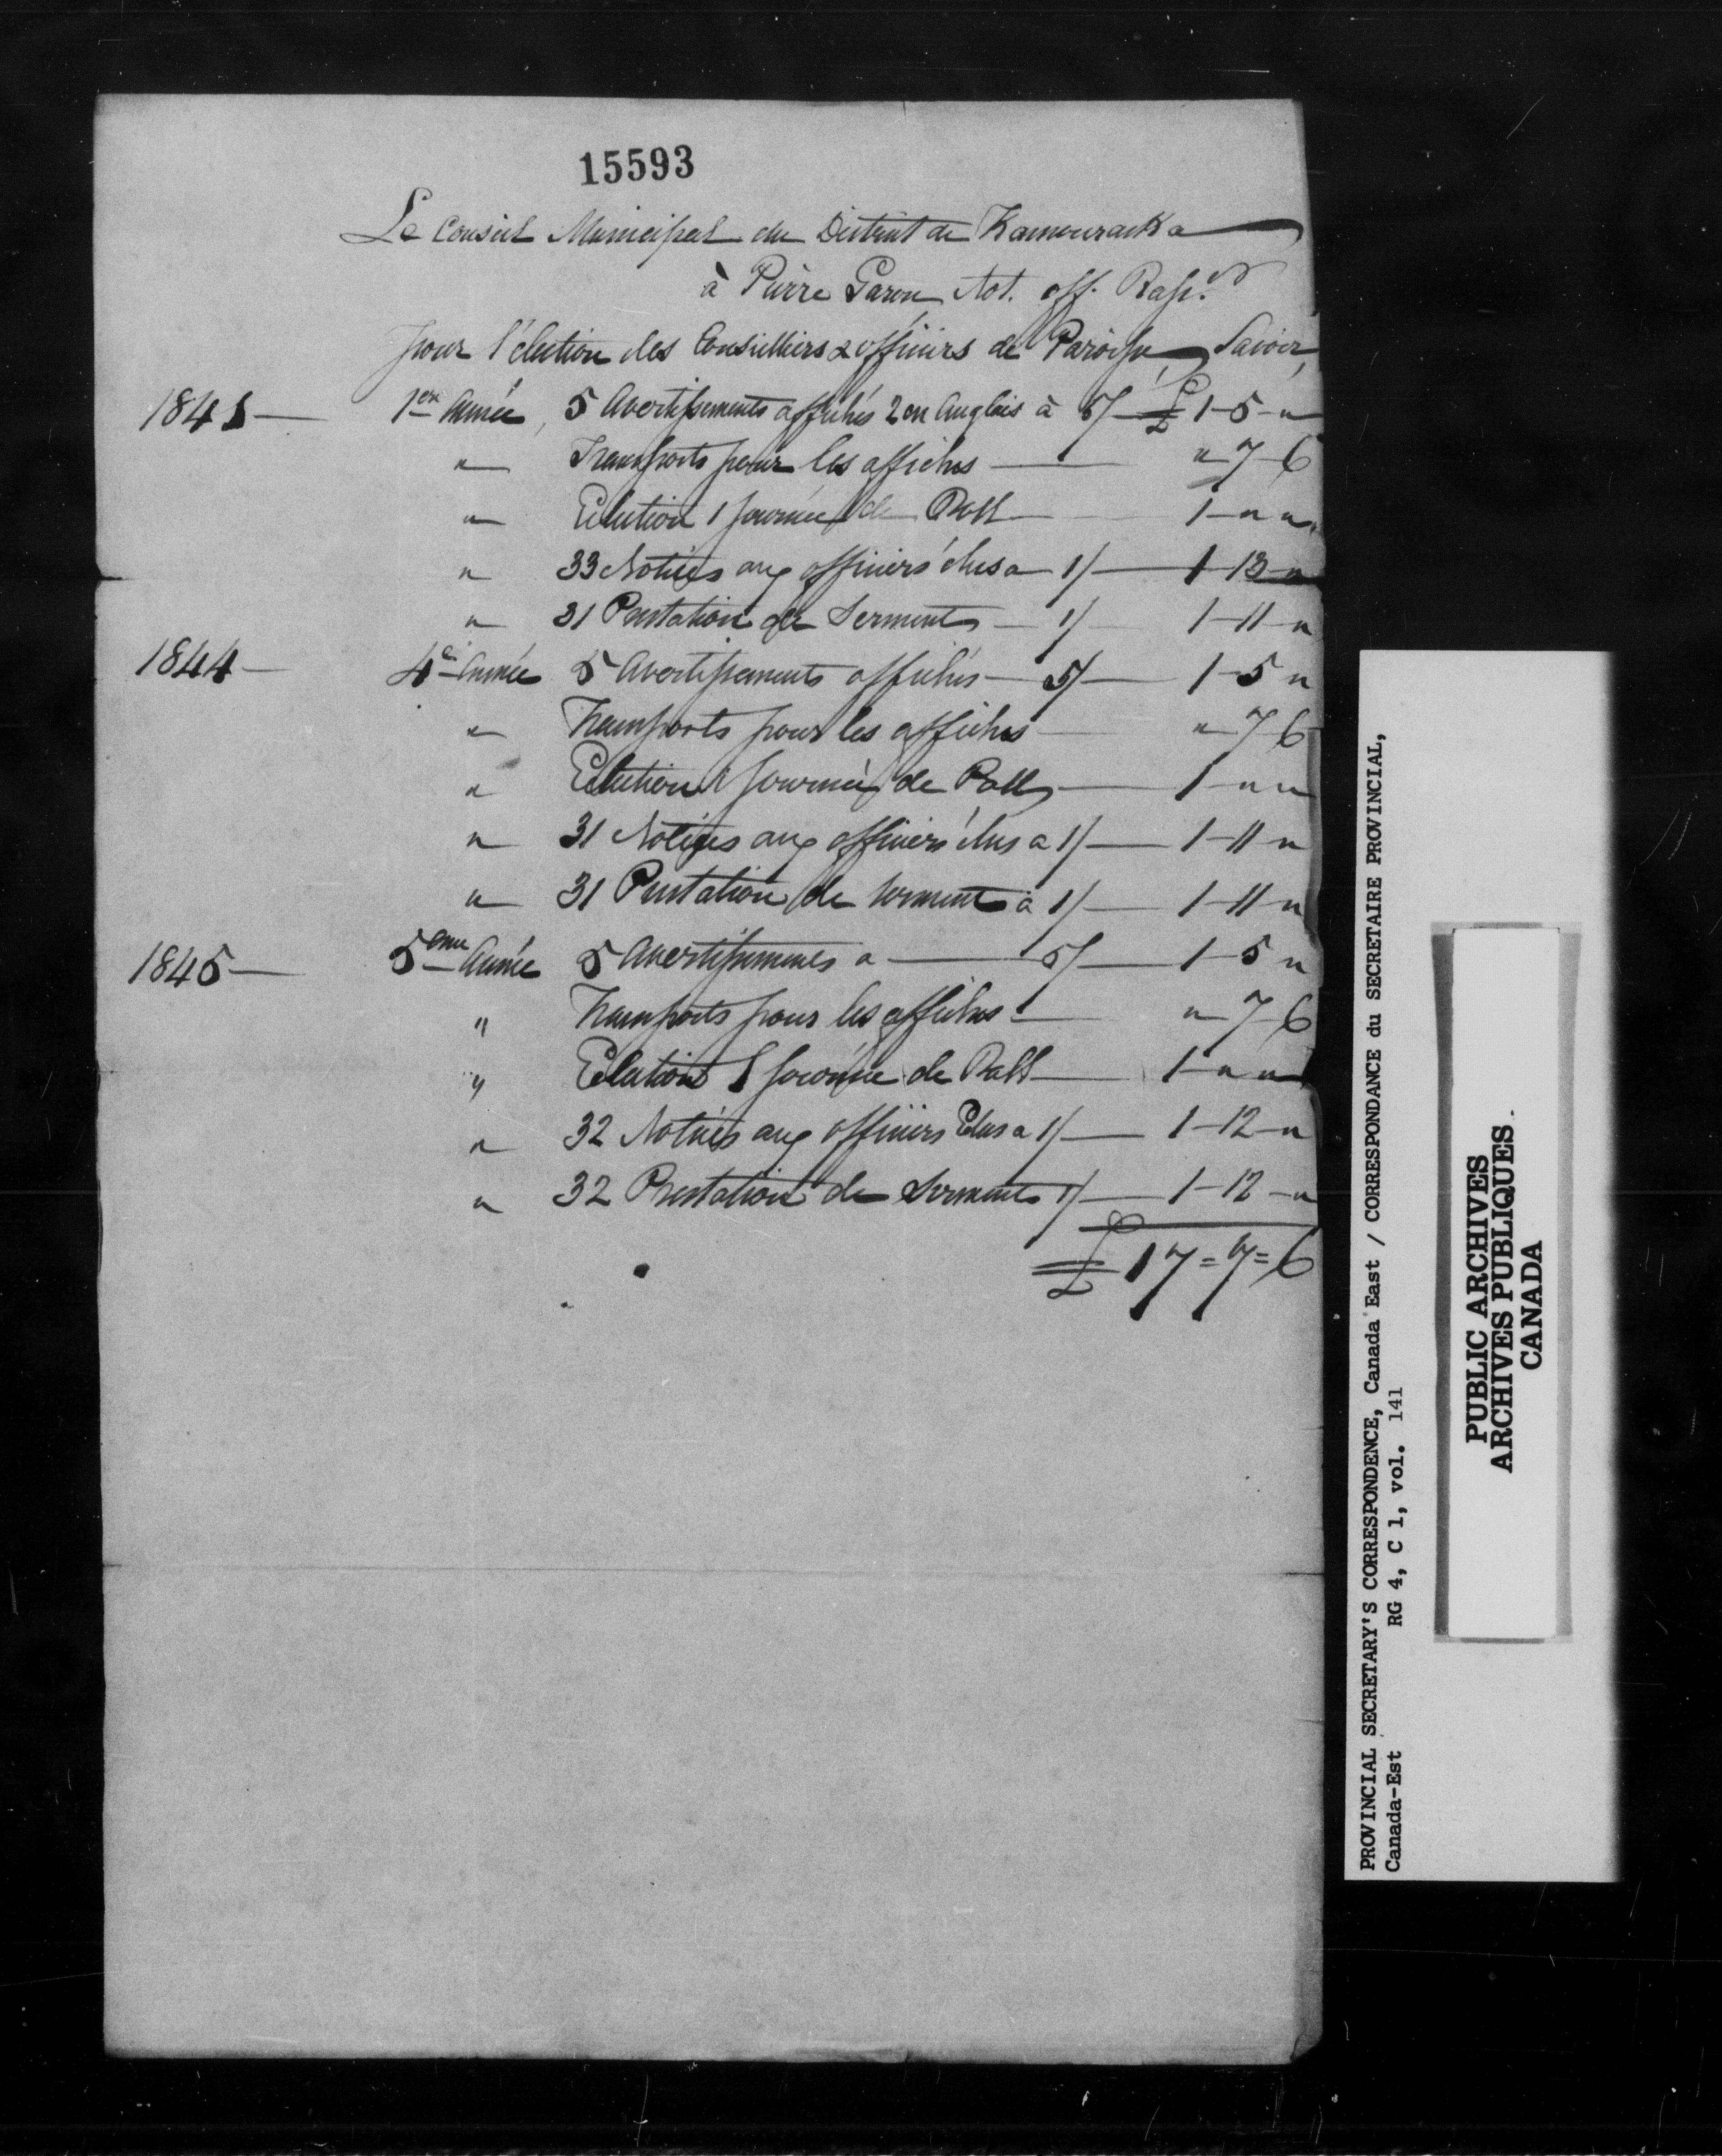 15593
Le Conseil Municipal du District de Kamouraska
à Pierre Garon, Not. off. Rapr.
pour l'élection des Conseilliers & officiers de Paroisse, Savoir,
1841 — 1ere Année, 5 Avertissements affichés 2 en Anglais à 5/ — £ 1-5-"
" Transports pour les affiches — " 7 6
" Election 1 Journée de Poll — 1 - " "
" 33 Notices aux officiers élus a 1/ — 1-13 "
" 31 Prestation de Serments — 1/ — 1-11-"
1844 — 4e Année 5 Avertissements affichés — 5/ — 1-5 "
" Transports pour les affiches — " 7 6
" Election 1 Journée de Poll — 1 - " "
" 31 Notices aux officiers élus a 1/ — 1-11-"
" 31 Prestation de serment à 1/ — 1-11-"
1845 — 5eme Année 5 Avertissements a — 5/ — 1-5 "
" Transports pour les affiches — " 7 6
" Election 1 Journée de Poll — 1 - " "
" 32 Notices aux officiers Elus a 1/ — 1-12-"
" 32 Prestation de Serments 1/ — 1-12-"
£ 17=7=6
PROVINCIAL SECRETARY'S CORRESPONDENCE, Canada East / CORRESPONDANCE du SECRETAIRE PROVINCIAL,
Canada-Est RG 4, C 1, vol. 141
PUBLIC ARCHIVES
ARCHIVES PUBLIQUES
CANADA